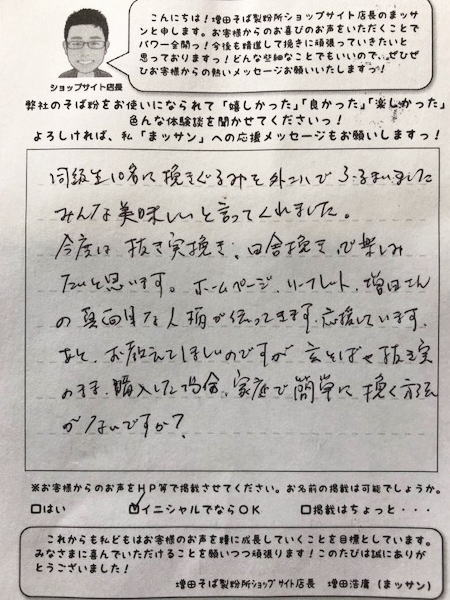 こんにちは！増田そば製粉所ショップサイト店長のまッサ
ンと申します。お客様からのお喜びのお声をいただくことで
パワー全開っ！今後も精進して挽きに頑張っていきたいと
思っておりますっ！どんな些細なことでもいいので、ぜひぜ
ひお客様からの熱いメッセージお願いいたしますっ！
ショップサイト店長
弊社のそば粉をお使いになられて「嬉しかった」「良かった」「楽しかった」
色んな体験談を聞かせてくださいっ！
よろしければ、私「まッサン」への応援メッセージもお願いしますっ！
同級生10名に挽きぐるみを外二八でふるまいました
みんな美味しいと言ってくれました。
今度は抜き実挽き、田舎挽きで楽しみ
たいと思います。ホームページ、リーフレット、増田さん
の真面目な人柄が伝ってきます、応援しています、
あと、お教えてほしいのですが玄そばや抜き実
のまま、購入した場合、家庭で簡単に挽く方法
がないですか？
※お客様からのお声をHP等で掲載させてください。お名前の掲載は可能でしょうか。
□はい ☑イニシャルでならOK □掲載はちょっと・・・
これからも私どもはお客様のお声を糧に成長していくことを目標としています。
みなさまに喜んでいただけることを願いつつ頑張ります！このたびは誠にありが
とうございました！
増田そば製粉所ショップサイト店長 増田浩庸（まッサン）